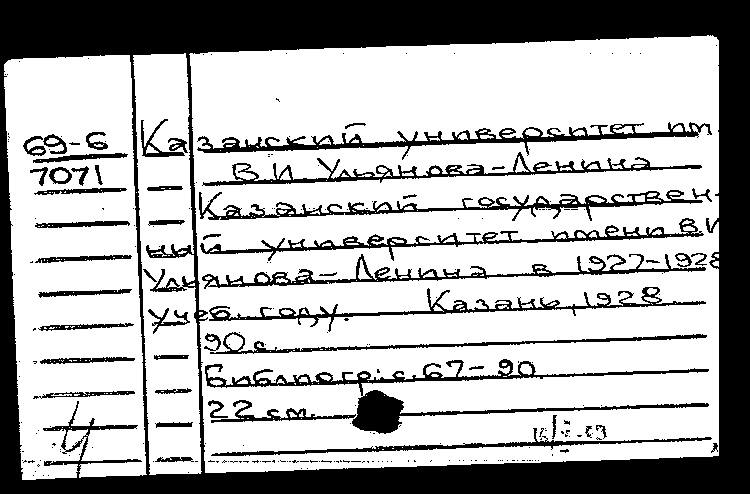 69-6 Казанский университет им.
7071 В.И. Ульянова-Ленина
Казанский государствен-
ный университет имени В.И
Ульянова-Ленина в 1927-1928
учеб. году. Казань, 1928
90 с.
Библиогр.: с. 67-90
22 см.
4